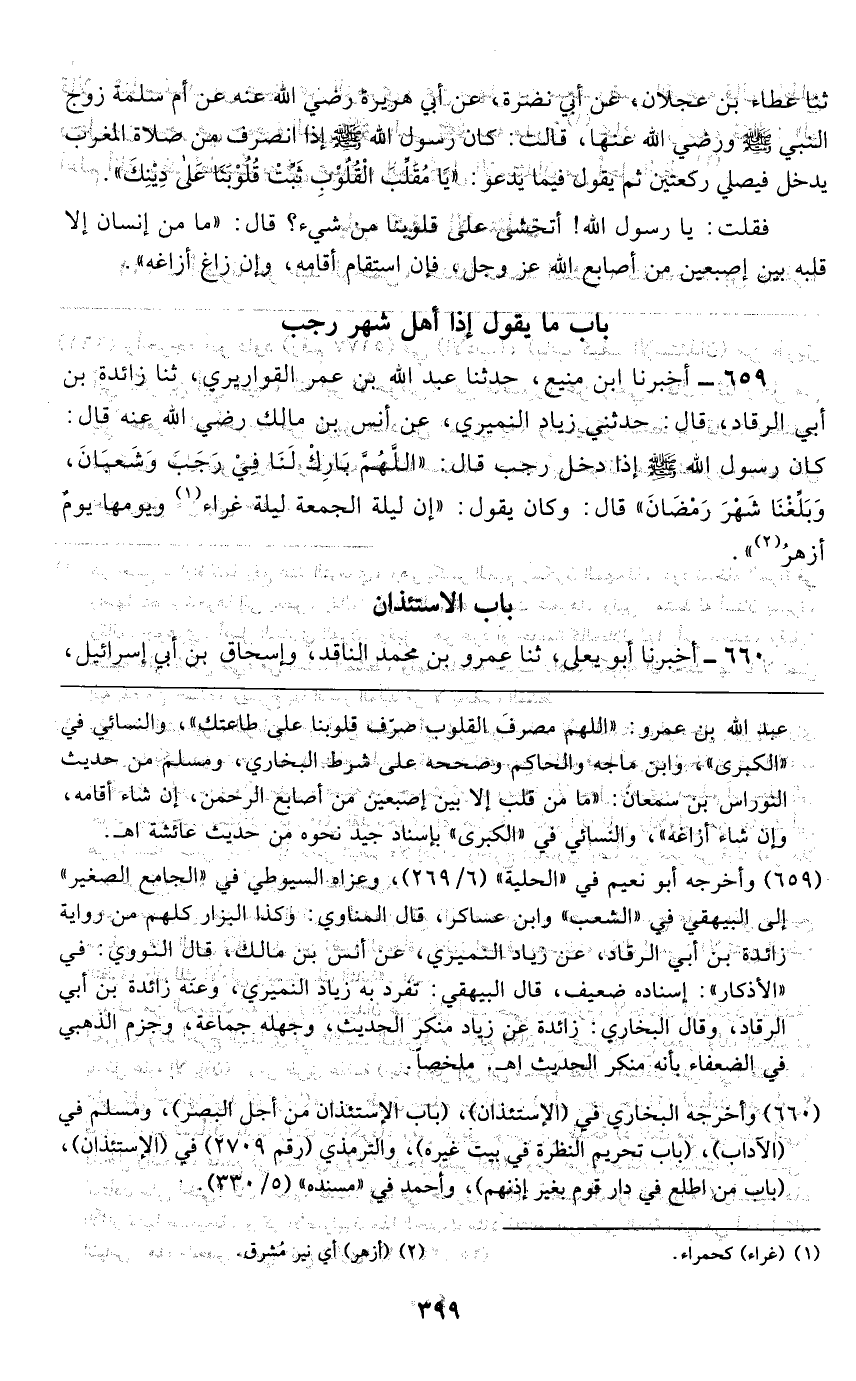 ثنا عطاء بن عجلان، عن أبي نضرة، عن أبي هريرة رضي الله عنه عن أم سلمة زوج
النبي ﷺ ورضي الله عنها، قالت: كان رسول الله ﷺ إذا انصرف من صلاة المغرب
يدخل فيصلي ركعتين ثم يقول فيما يدعو: «يَا مُقَلِّبَ الْقُلُوْبِ ثَبِّتْ قُلُوْبَنَا عَلىٰ دِيْنِكَ».
فقلت: يا رسول الله! أتخشى على قلوبنا من شيء؟ قال: «ما من إنسان إلا
قلبه بين إصبعين من أصابع الله عز وجل، فإن استقام أقامه، وإن زاغ أزاغه».
باب ما يقول إذا أهل شهر رجب
٦٥٩ ــ أخبرنا ابن منيع، حدثنا عبد الله بن عمر القواريري، ثنا زائدة بن
أبي الرقاد، قال: حدثني زياد النميري، عن أنس بن مالك رضي الله عنه قال:
كان رسول الله ﷺ إذا دخل رجب قال: «اللَّهُمَّ بَارِكْ لَنَا فِيْ رَجَبَ وَشَعبَانَ،
وَبَلِّغْنَا شَهْرَ رَمْضَانَ» قال: وكان يقول: «إن ليلة الجمعة ليلة غراء(١) ويومها يومٌ
أزهرُ(٢)».
باب الاستئذان
٦٦٠ ــ أخبرنا أبو يعلى، ثنا عمرو بن محمد الناقد، وإسحاق بن أبي إسرائيل،
عبد الله بن عمرو: «اللهم مصرفَ القلوب صرّف قلوبنا على طاعتك»، والنسائي في
«الكبرى»، وابن ماجه والحاكم وصححه على شرط البخاري، ومسلم من حديث
النوراس بن سمعان: «مَا من قلب إلا بين إصبعين من أصابع الرحمن، إن شاء أقامه،
وإن شاء أزاغه»، والنسائي في «الكبرى» بإسناد جيد نحوه من حديث عائشة اهـ.
(٦٥٩) وأخرجه أبو نعيم في «الحلية» (٢٦٩/٦)، وعزاه السيوطي في «الجامع الصغير»
إلى البيهقي في «الشعب» وابن عساكر، قال المناوي: وكذا البزار كلهم من رواية
زائدة بن أبي الرقاد، عن زياد النميري، عن أنس بن مالك، قال النووي: في
«الأذكار»: إسناده ضعيف، قال البيهقي: تفرد به زياد النميري، وعنه زائدة بن أبي
الرقاد، وقال البخاري: زائدة عن زياد منكر الحديث، وجهله جماعة، وجزم الذهبي
في الضعفاء بأنه منكر الحديث اهـ. ملخصاً.
(٦٦٠) وأخرجه البخاري في (الإستئذان)، (باب الإستئذان من أجل البصر)، ومسلم في
(الآداب)، (باب تحريم النظرة في بيت غيره)، والترمذي (رقم ٢٧٠٩) في (الإستئذان)،
(باب من اطلع في دار قوم بغير إذنهم)، وأحمد في «مسنده» (٣٣٠/٥).
(١) (غراء) كحمراء. (٢) (أزهر) أي نير مُشرق.
٣٩٩